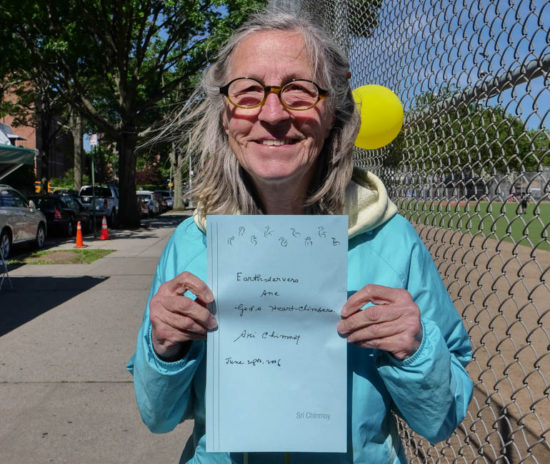 Earth-servers
Are
God's Heart-Climbers.
Sri Chinmoy
June
Sri Chinmoy